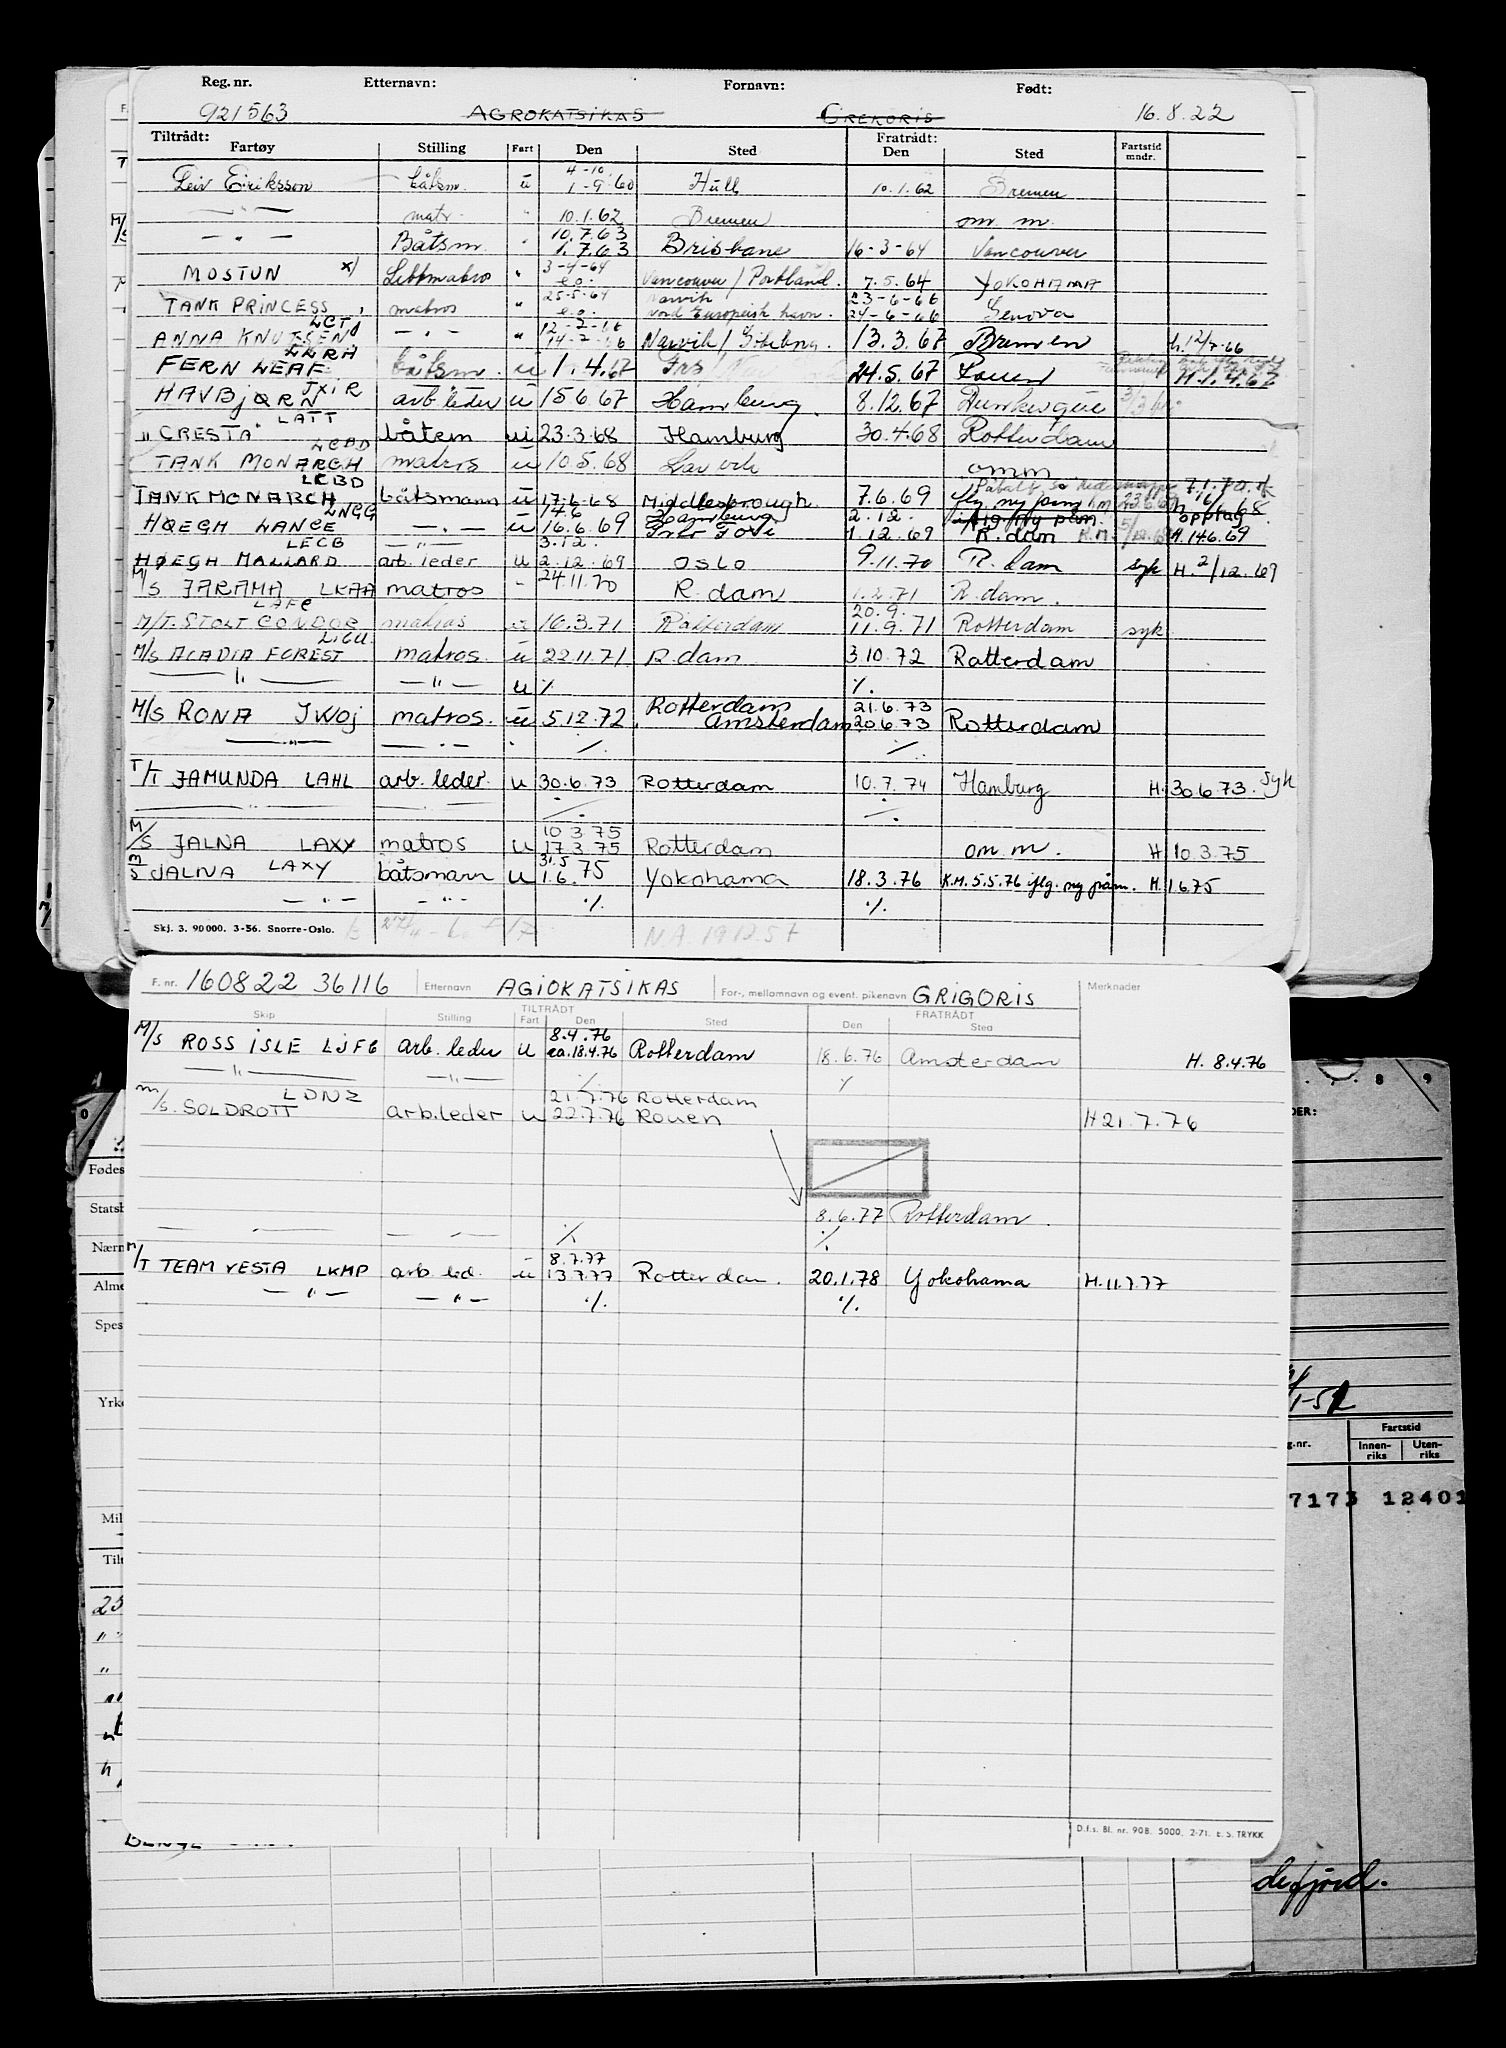 Reg. nr. Etternavn: Fornavn: Født:
921563 AGROKATSIKAS GREKORIS 16.8.22
Tiltrådt: Fratrådt:
Fartøy Stilling Fart Den Sted Den Sted Fartstid mndr.
4-10
Leiv Eiriksson båtsm. u 1-9-60 Hull 10.1.62 Bremen
— " — matr. " 10.1.62 Bremen om. m.
10.7.63
— " — Båtsm. " 1.7.63 Brisbane 16-3-64 Vancouver
3-4-64
MOSTUN x) Lettmatros " e.o. Vancouver / Portland. 7.5.64 YOKOHAMA
25-5-64 Narvik 23-6-66
TANK PRINCESS matros " e.o. Nord Europeisk havn. 24-6-66 Genova
LCTJ 12-7-66
ANNA KNUTSEN — " — " 14-7-66 Narvik / Göteborg. 13.3.67 Bremen h. 12/7-66
LLRA
FERN LEAF båtsm. u 1.4.67 24.5.67 Rouen H. 1.4.67
HAVBJØRN JXIR arb. leder u 15.6.67 Hamburg. 8.12.67 Dunkerque
LATT
" CRESTA" båtsm ui 23.3.68 Hamburg 30.4.68 Rotterdam
LCBD
TANK MONARCH matros u 10.5.68 Larvik omm
LCBD
TANK MONARCH båtsmann u 17.6.68 Middlesbrough. 7.6.69 iflg ny pem
LNGG 14.6 Hamburg 2.12.
HØEGH LANCE — " — u 16.6.69 1.12.69 R. dam H. 14.6.69
LECB 3.12.
HØEGH MALLARD arb. leder u 2.12.69 OSLO 9.11.70 R. dam syk H. 2/12.69
M/S JARAMA LKAA matros - 24.11.70 R. dam 1.2.71 R. dam.
LAFC 20.9.
M/T. STOLT CONDOR matros u 16.3.71 Rotterdam 11.9.71 Rotterdam syk
LIGU.
M/S ACADIA FOREST matros. u 22.11.71 R. dam 3.10.72 Rotterdam
— " — — " — u ·/. ·/.
Rotterdam 21.6.73
M/S RONA JWOJ matros. u 5.12.72 Amsterdam 20.6.73 Rotterdam
— " — — " — " ·/. ·/.
T/T JAMUNDA LAHL arb. leder. u 30.6.73 Rotterdam 10.7.74 Hamburg H. 30.6.73. syk
— " — — " — ·/. ·/.
10.3.75
M/S JALNA LAXY matros u 17.3.75 Rotterdam om. m. H 10.3.75
31.5
M/S JALNA LAXY båtsmann u 1.6.75 Yokohama 18.3.76 K.M. 5.5.76 iflg. ny påm. H. 1.6.75
— " — — " — ·/. ·/.
Skj. 3. 90 000. 3-56. Snorre-Oslo. N.A. 19.12.57
F. nr. 160822 36116 Etternavn AGIOKATSIKAS For-, mellomnavn og event. pikenavn GRIGORIS Merknader
TILTRÅDT FRATRÅDT
Skip Stilling Fart Den Sted Den Sted
8.4.76
M/S ROSS ISLE LJFG arb. leder u ca. 18.4.76 Rotterdam 18.6.76 Amsterdam H. 8.4.76
— " — — " — ·/. ·/.
LDNZ 21.7.76 Rotterdam
M/S. SOLDROTT arb.leder u 22.7.76 Rouen H 21.7.76
8.6.77 Rotterdam.
— " — — " — ·/. ·/.
8.7.77
M/T TEAM VESTA LKMP arb. led. u 13.7.77 Rotterdam. 20.1.78 Yokohama H. 11.7.77
— " — — " — ·/. ·/.
D.f.s. Bl. nr. 90B. 5000. 2-71. E. S. TRYKK
Fødes
Statsb
Nærm
Alme
Spes
Yrke
Mil
Tilt
25
. 8 9
DER:
1-52
Fartstid
g.nr. Innenriks Utenriks
7173 12401
defjord.